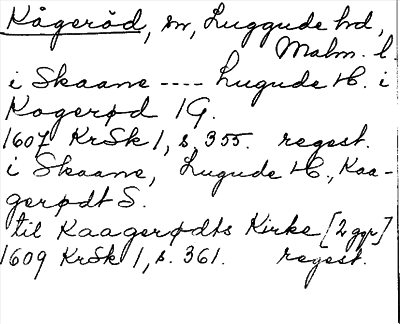 Kågeröd, sn, Luggude hd,
Malm. l.
i Skaane ---- Lugude H. i
Kagerød 1 G.
1607 KrSk 1, s, 355. regest.
i Skaane, Lugude H., Kaa-
gerødt S.
til Kaagerødts Kirke [2 ggr]
1609 KrSk 1, s. 361. regest.